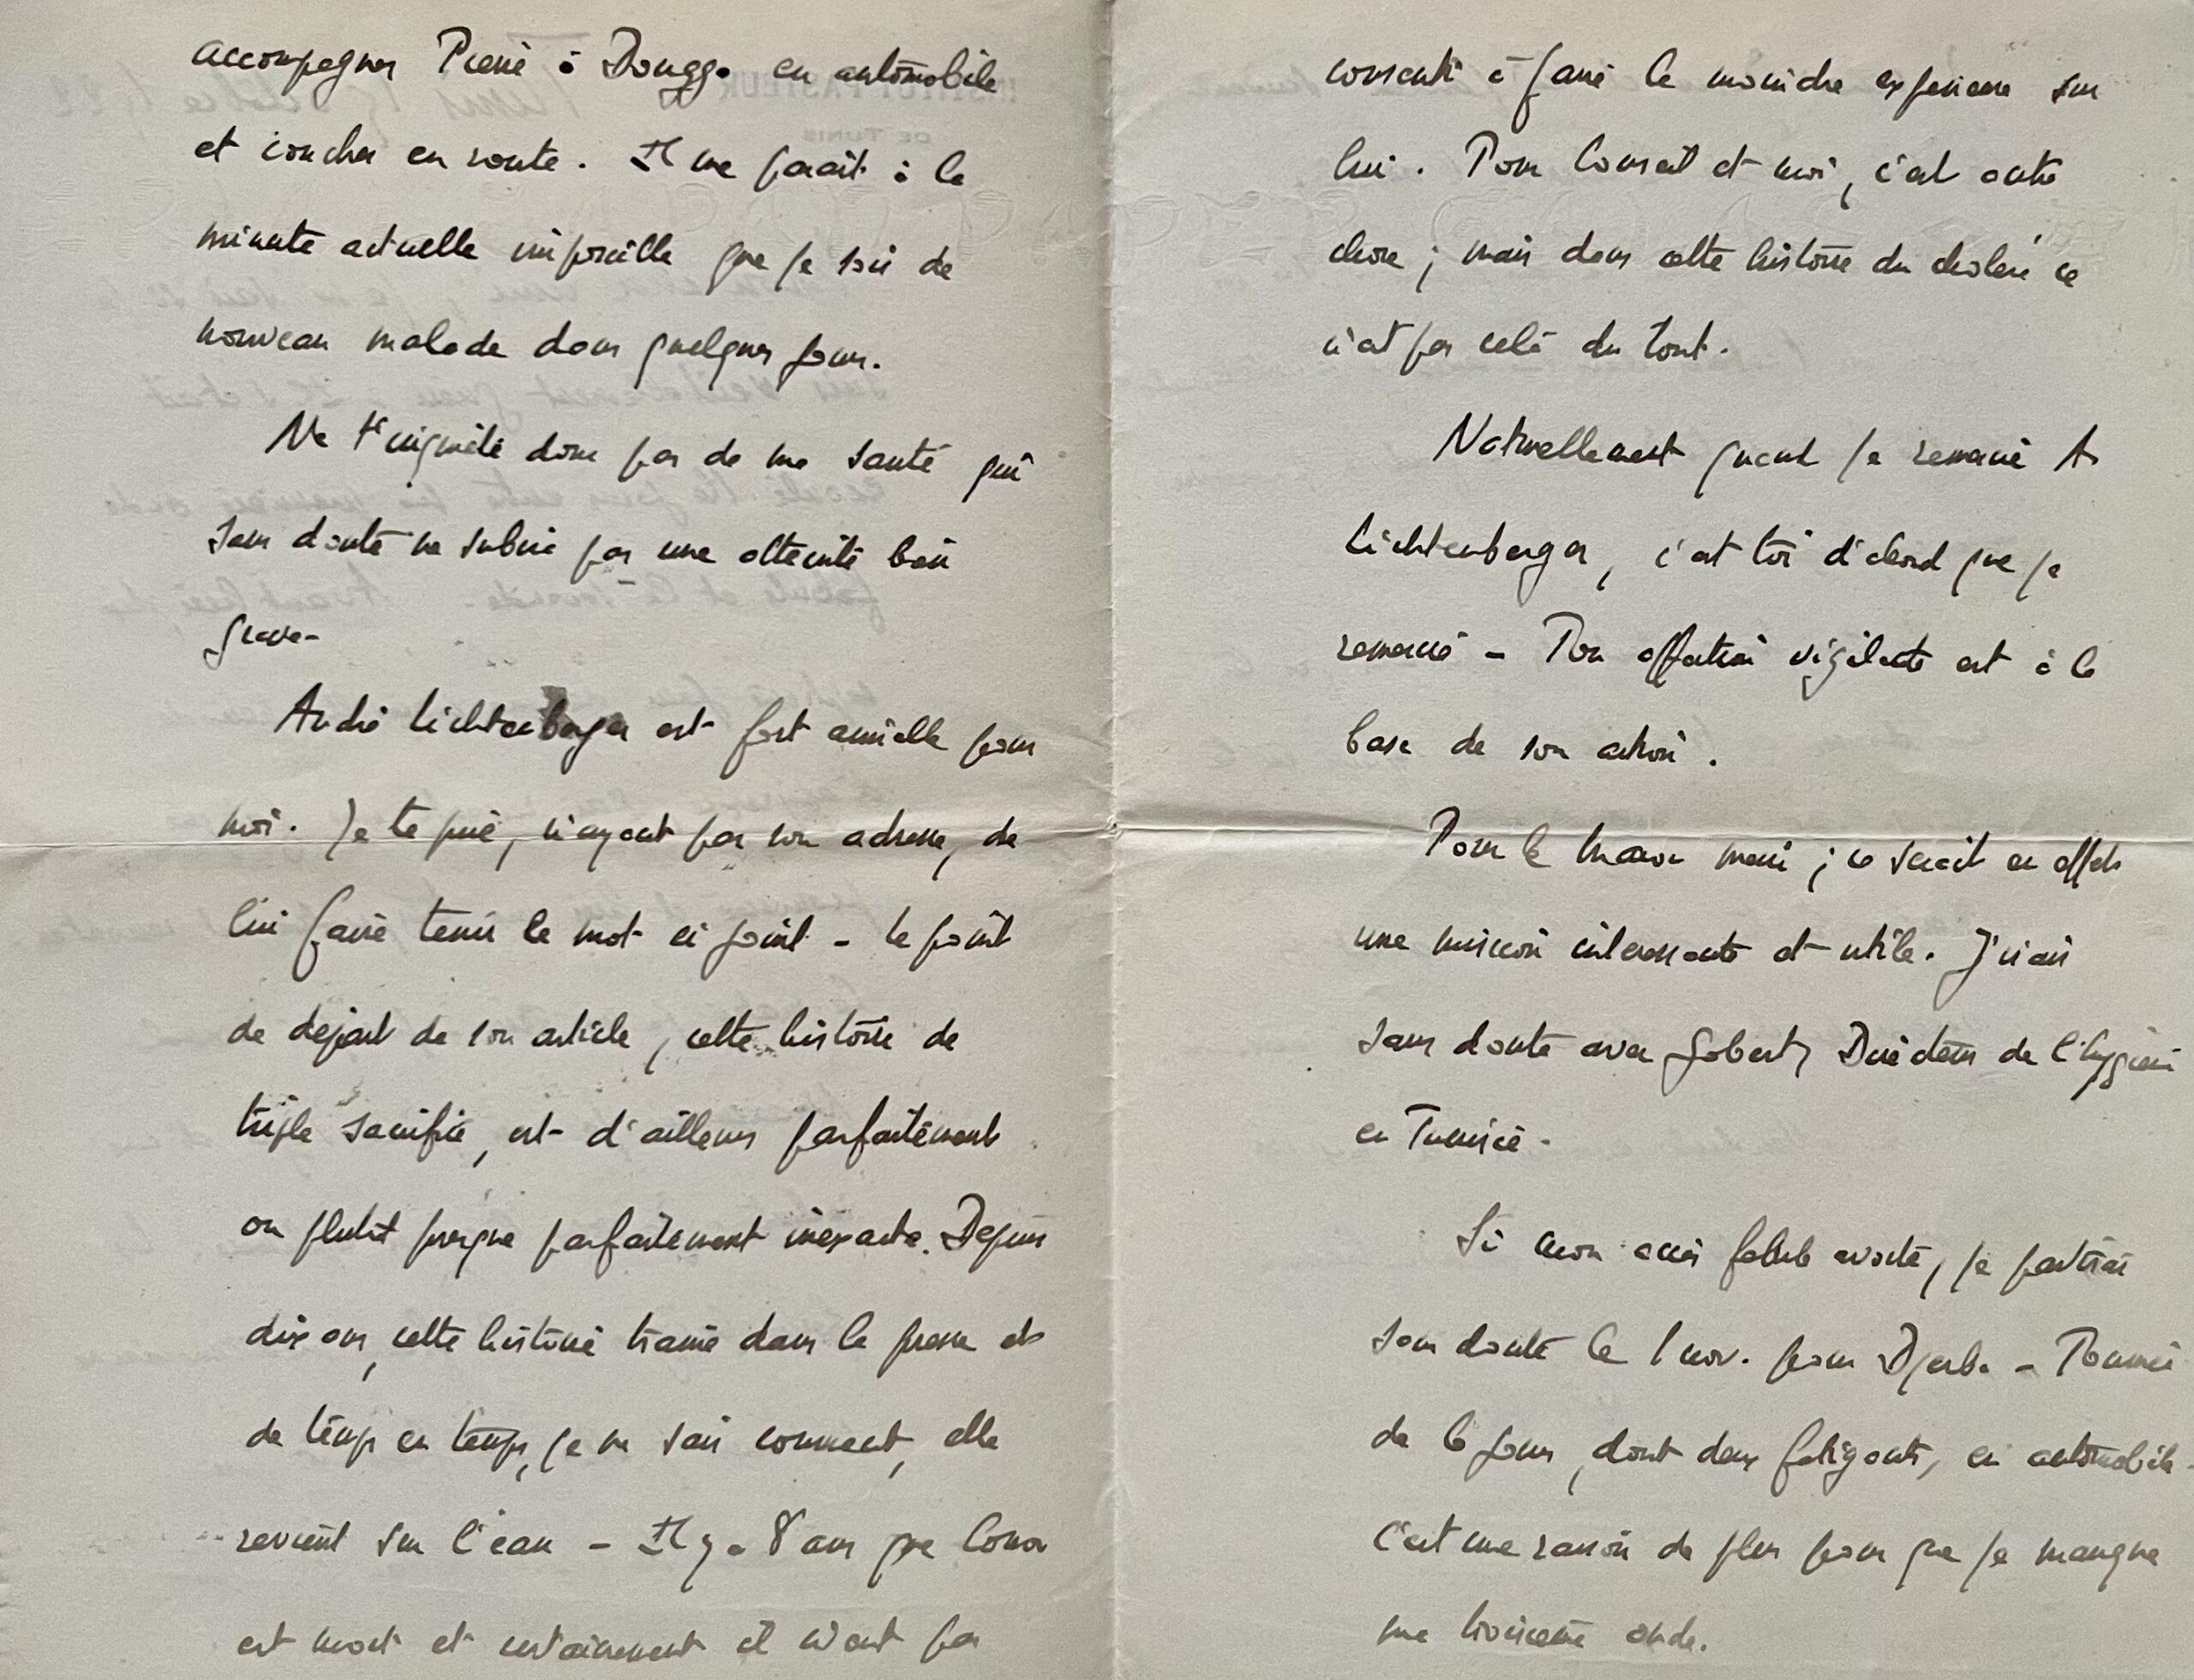 accompagner Pierre à Dougga en automobile
et coucher en route. Il me parait à la
minute actuelle impossible que je sois de
nouveau malade dans quelques jours.
Ne t'inquiète donc pas de ma santé qui
sans doute ne subira pas une atteinte bien
grave -
André Lichtenberger est fort aimable pour
moi. Je te prie, n'ayant pas son adresse, de
lui faire tenir le mot ci joint - Le point
de départ de son article, cette histoire de
triple sacrifice, est d'ailleurs parfaitement
ou plutôt presque parfaitement inexacte. Depuis
dix ans, cette histoire traine dans la presse et
de temps en temps, je ne sais comment, elle
revient sur l'eau - Il y a 8 ans que Conor
est mort et certainement il n'eut pas
consenti à faire la moindre expérience sur
lui. Pour Conseil et moi, c'est autre
chose ; mais dans cette histoire du choléra ce
n'est pas cela du tout.
Naturellement quand je remercie A
Lichtenberger, c'est toi d'abord que je
remercie - Ton affection vigilante est à la
base de son action.
Pour le Maroc merci ; ce serait en effet
une mission intéressante et utile. J'irais
sans doute avec Gobert, Directeur de l'hygiène
en Tunisie -
Si mon accès fébrile avorte, je partirai
sans doute le 1 nov. pour Djerba - Tournée
de 6 jours, dont deux fatigants, en automobile -
C'est une raison de plus pour que je manque
ma troisième onde.